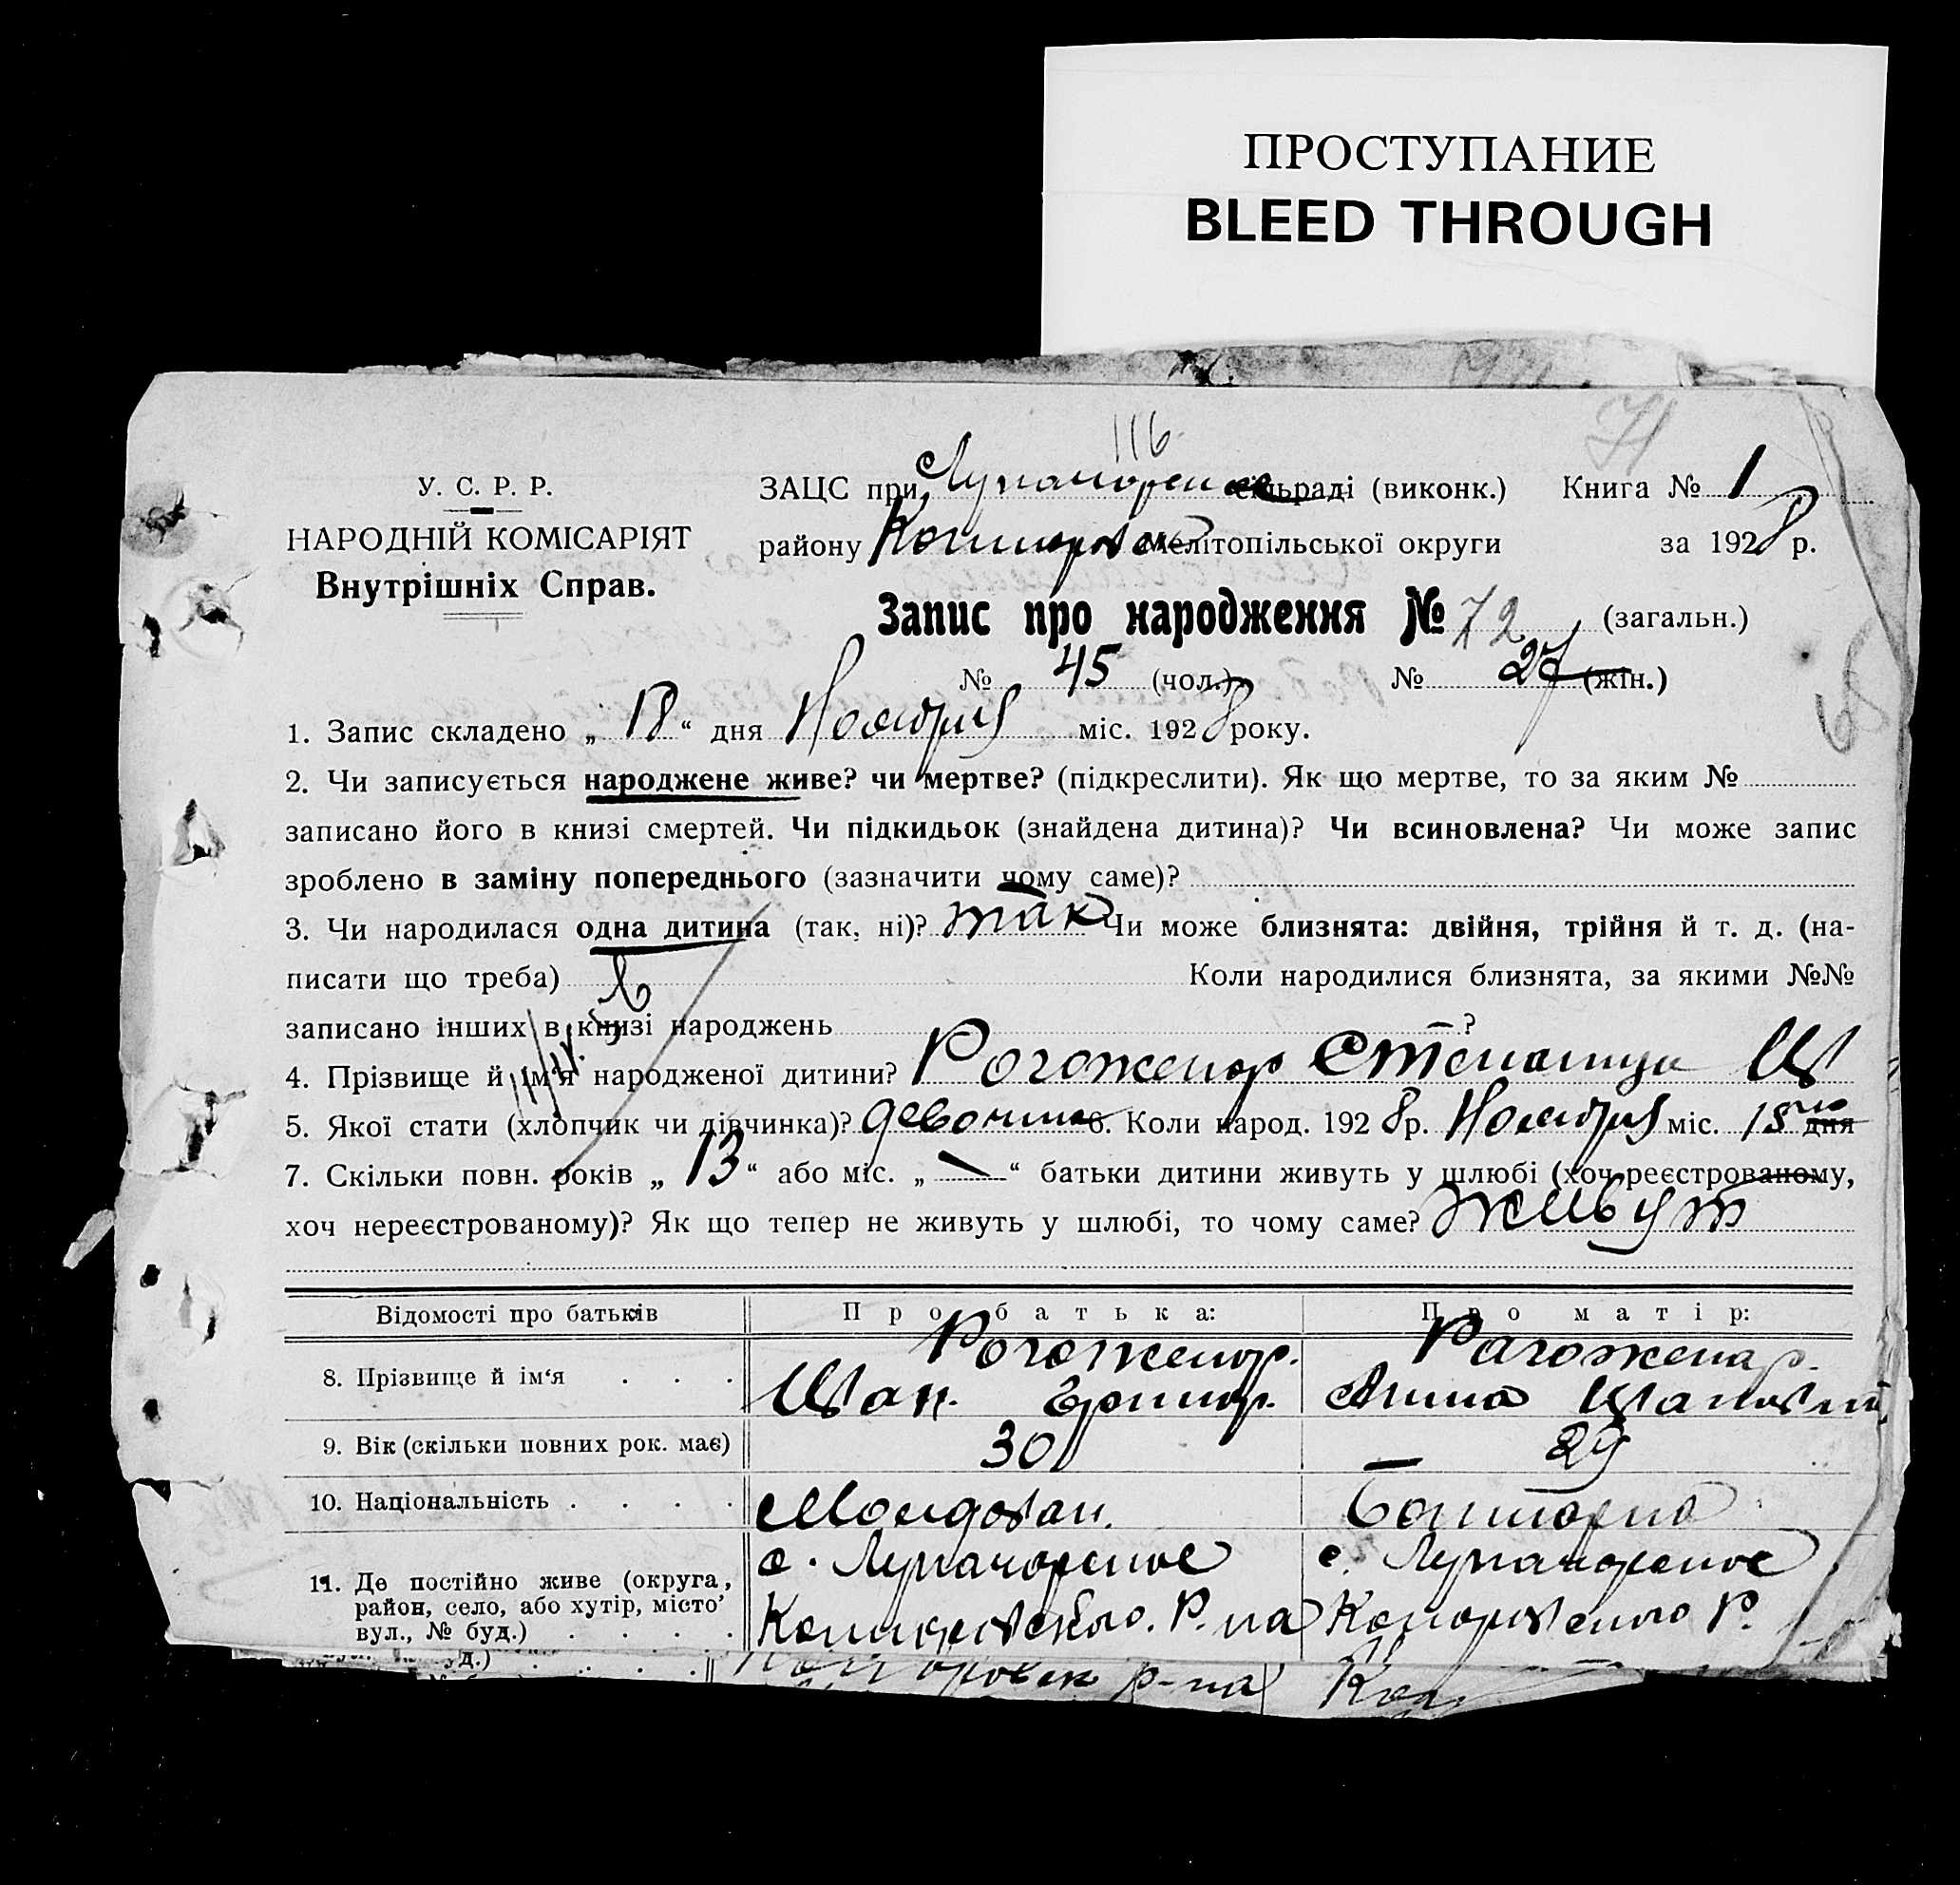 ПРОСТУПАНИЕ
BLEED THROUGH
71
116
У. С. Р. Р.
НАРОДНІЙ КОМІСАРІЯТ
Внутрішніх Справ.
ЗАЦС при сільраді (виконк.) Книга № 1
району Мелітопільської округи за 1928 р.
Запис про народження № 72 (загальн.)
№ 45 (чол.) № 27 (жін.)
1. Запис складено „ 18 “ дня Ноября міс. 1928 року.
2. Чи записується народжене живе? чи мертве? (підкреслити). Як що мертве, то за яким №
записано його в книзі смертей. Чи підкидьок (знайдена дитина)? Чи всиновлена? Чи може запис
зроблено в заміну попереднього (зазначити чому саме)?
3. Чи народилася одна дитина (так, ні)? так Чи може близнята: двійня, трійня й т. д. (на-
писати що треба) Коли народилися близнята, за якими №№
записано інших в книзі народжень — ?
4. Прізвище й ім'я народженої дитини? Рогоженар Степанида И
5. Якої стати (хлопчик чи дівчинка)? девочика 6. Коли народ. 1928 р. Ноября міс. 15го дня
7. Скільки повн. років „ 13 “ або міс. „ — “ батьки дитини живуть у шлюбі (хоч реєстрованому,
хоч нереєстрованому)? Як що тепер не живуть у шлюбі, то чому саме? живут
Відомості про батьків Про батька: Про матір:
8. Прізвище й ім‘я . . . Рогоженар. Рагоженар.
Иван. Анна Ивановна
9. Вік (скільки повних рок. має) 30 29
10. Національність . . . . Молдован. Болгарка
11. Де постійно живе (округа, с. Луначарское с. Луначарское
район, село, або хутір, місто’
вул., № буд.) . . . . Р.
уд.) . . . . р-на